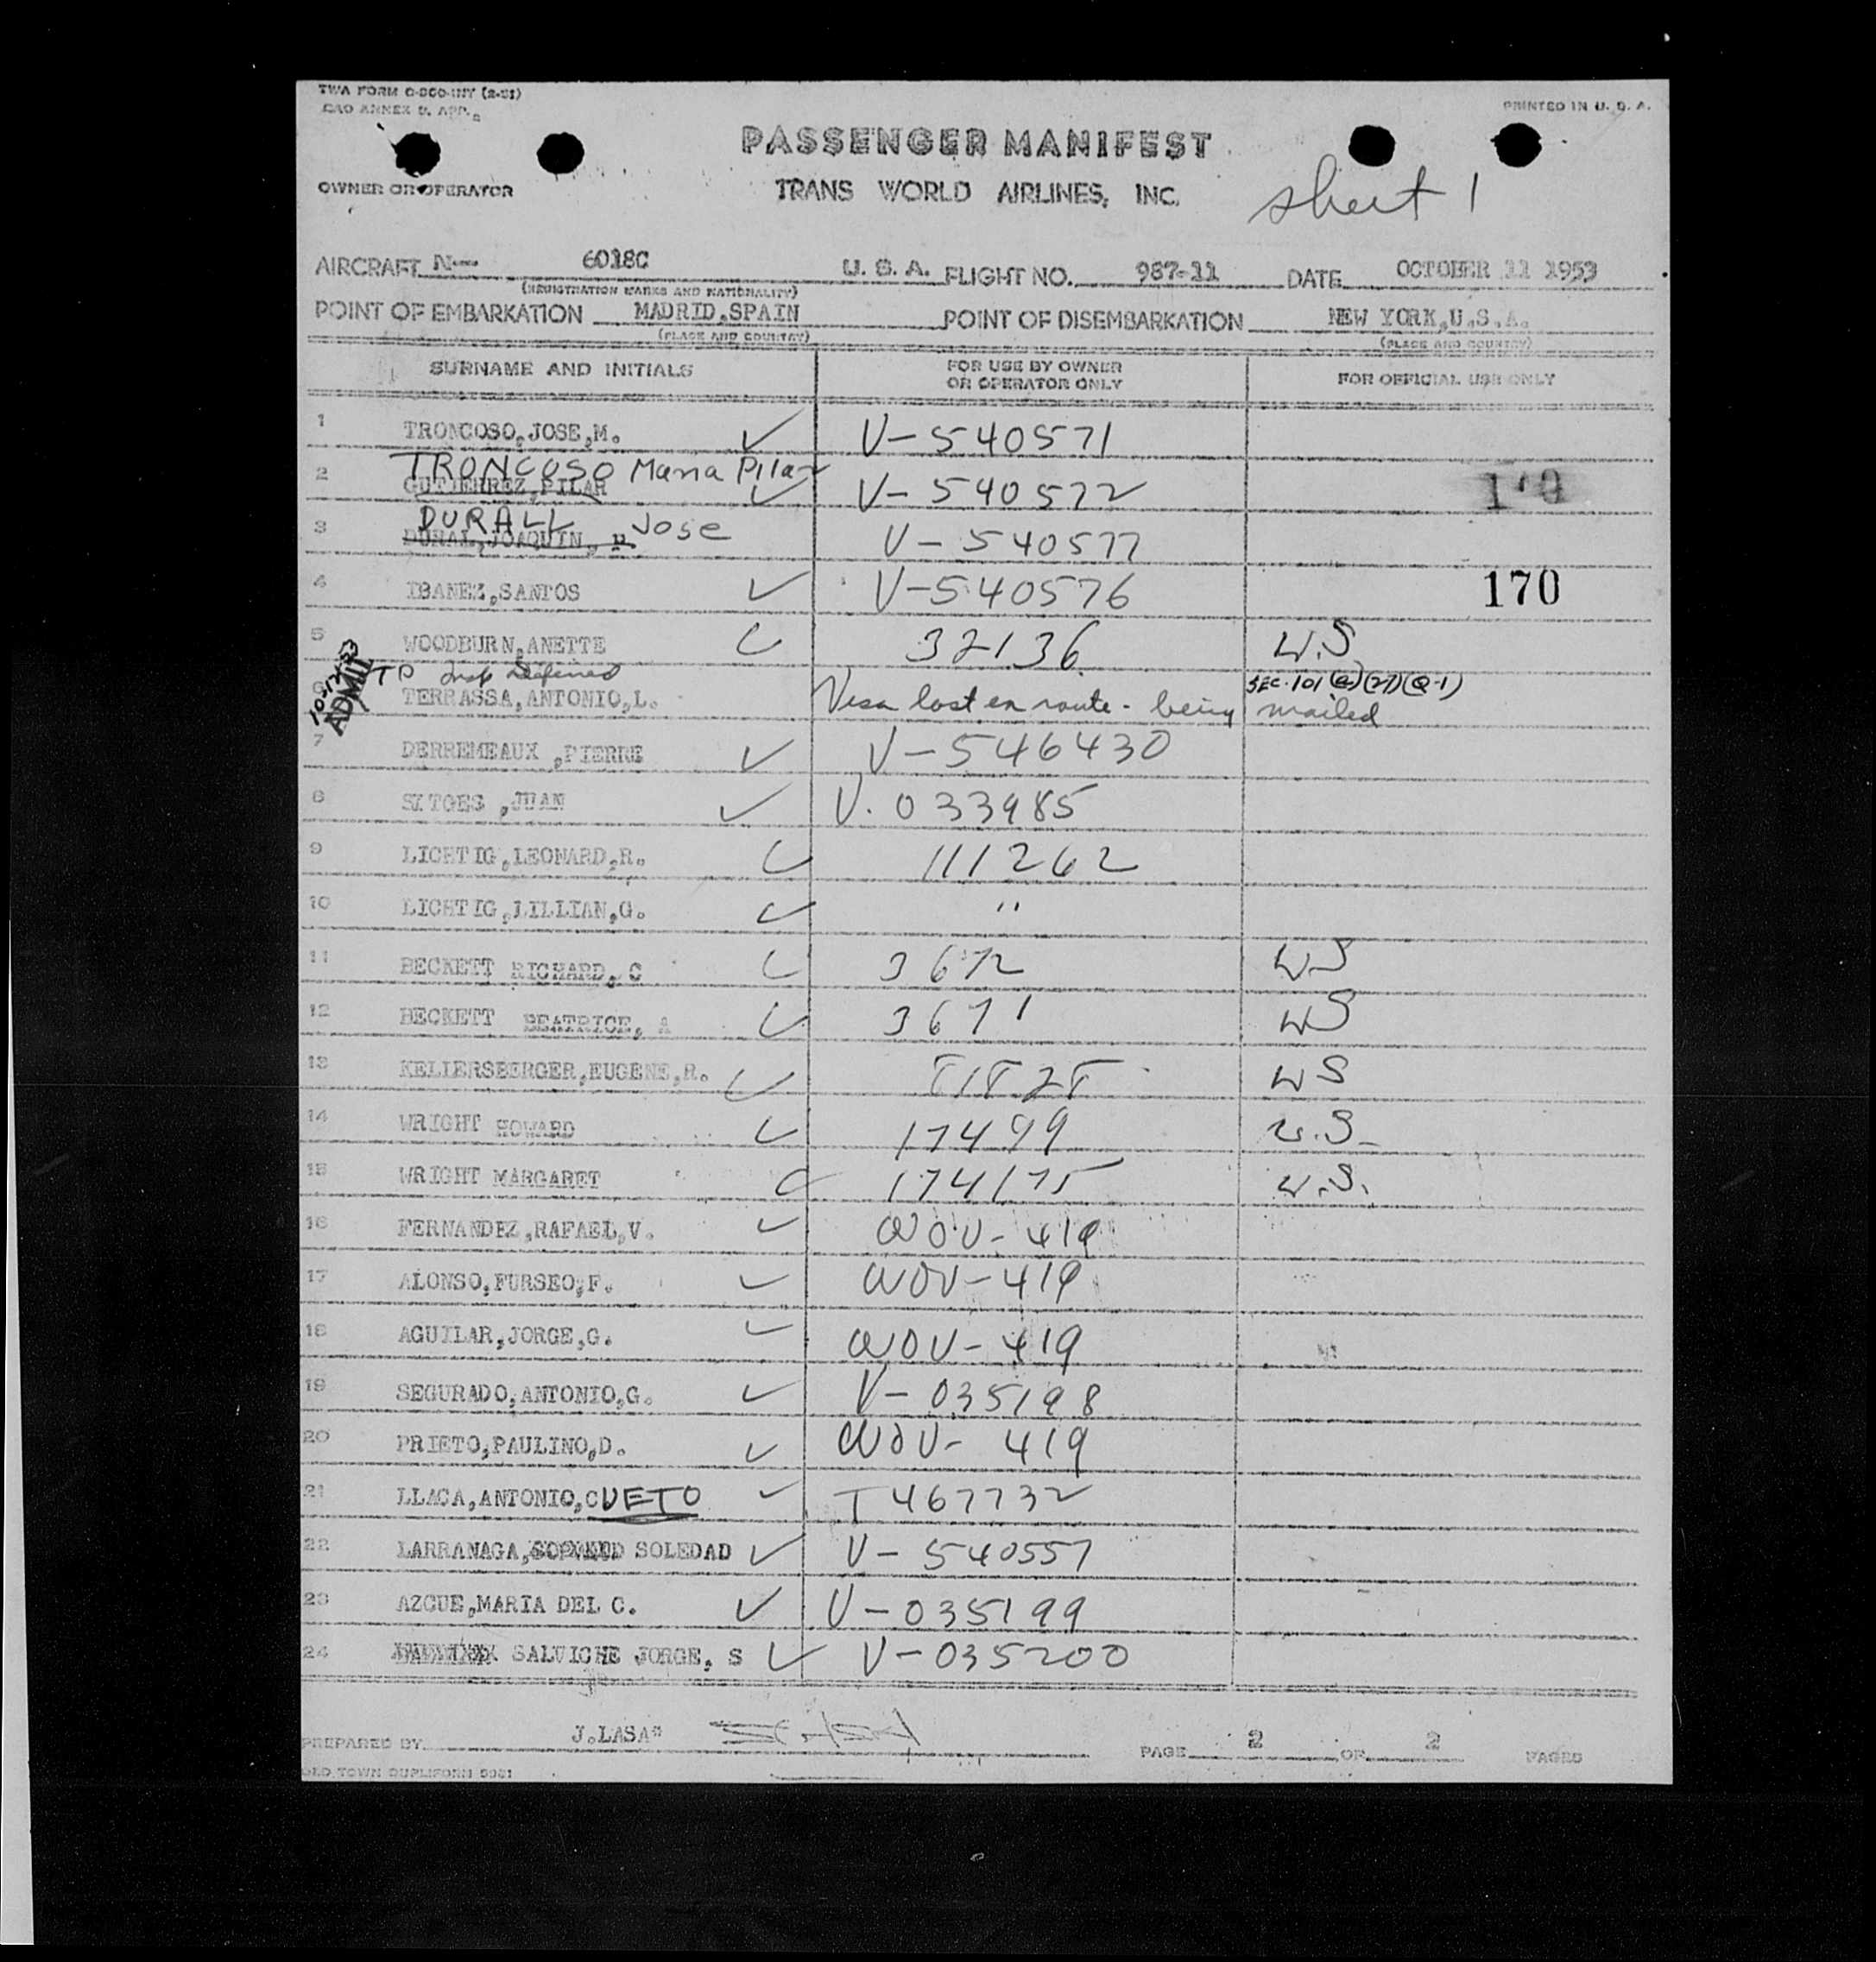 TWA FORM O-800-INT (2-51)
CAO ANNEX 9, APP.
PRINTED IN U. S. A.
PASSENGER MANIFEST
OWNER OR OPERATOR
TRANS WORLD AIRLINES, INC.
sheet 1
AIRCRAFT N-- 6018C U. S. A. FLIGHT NO. 987-11 DATE OCTOBER 11 1953
(REGISTRATION MARKS AND NATIONALITY)
POINT OF EMBARKATION MADRID,SPAIN POINT OF DISEMBARKATION NEW YORK,U.S.A.
(PLACE AND COUNTRY) (PLACE AND COUNTRY)
SURNAME AND INITIALS FOR USE BY OWNER OR OPERATOR ONLY FOR OFFICIAL USE ONLY
1 TRONCOSO,JOSE,M. V-540571
TRONCOSO Maria Pilar
2 GUTIERREZ,PILAR V-540572
DURALL Jose
3 DURAL,JOAQUIN, V-540577
4 IBANEZ,SANTOS V-540576 170
5 WOODBURN,ANETTE 32136 U.S
ADMIT TD Insp Deferred SEC.101(a)(27)(Q-1)
6 TERRASSA,ANTONIO,L. Visa lost en route - being mailed
7 DERREMEAUX ,PIERRE V-546430
8 SITGES ,JUAN V. 033985
9 LICHTIG,LEONARD,R. 111262
10 LICHTIG,LILLIAN,G. "
11 BECKETT RICHARD, C 3672 US
12 BECKETT BEATRICE, A 3671 US
13 KELLERSBERGER,EUGENE,R. US
14 WRIGHT HOWARD 17499 U.S.
15 WRIGHT MARGARET 174175 U.S.
16 FERNANDEZ,RAFAEL,V. WOV-419
17 ALONSO,FURSEO,F. WOV-419
18 AGUILAR,JORGE,G. WOV-419
19 SEGURADO,ANTONIO,G. V-035198
20 PRIETO,PAULINO,D. WOV- 419
21 LLACA,ANTONIO,CUETO T467732
22 LARRANAGA, SOLEDAD V-540557
23 AZCUE,MARIA DEL C. V-035199
24 SALVICHE JORGE, S V-035200
PREPARED BY J.LASA PAGE 2 OF 2 PAGES
OLD TOWN DUPLIFORM 9981